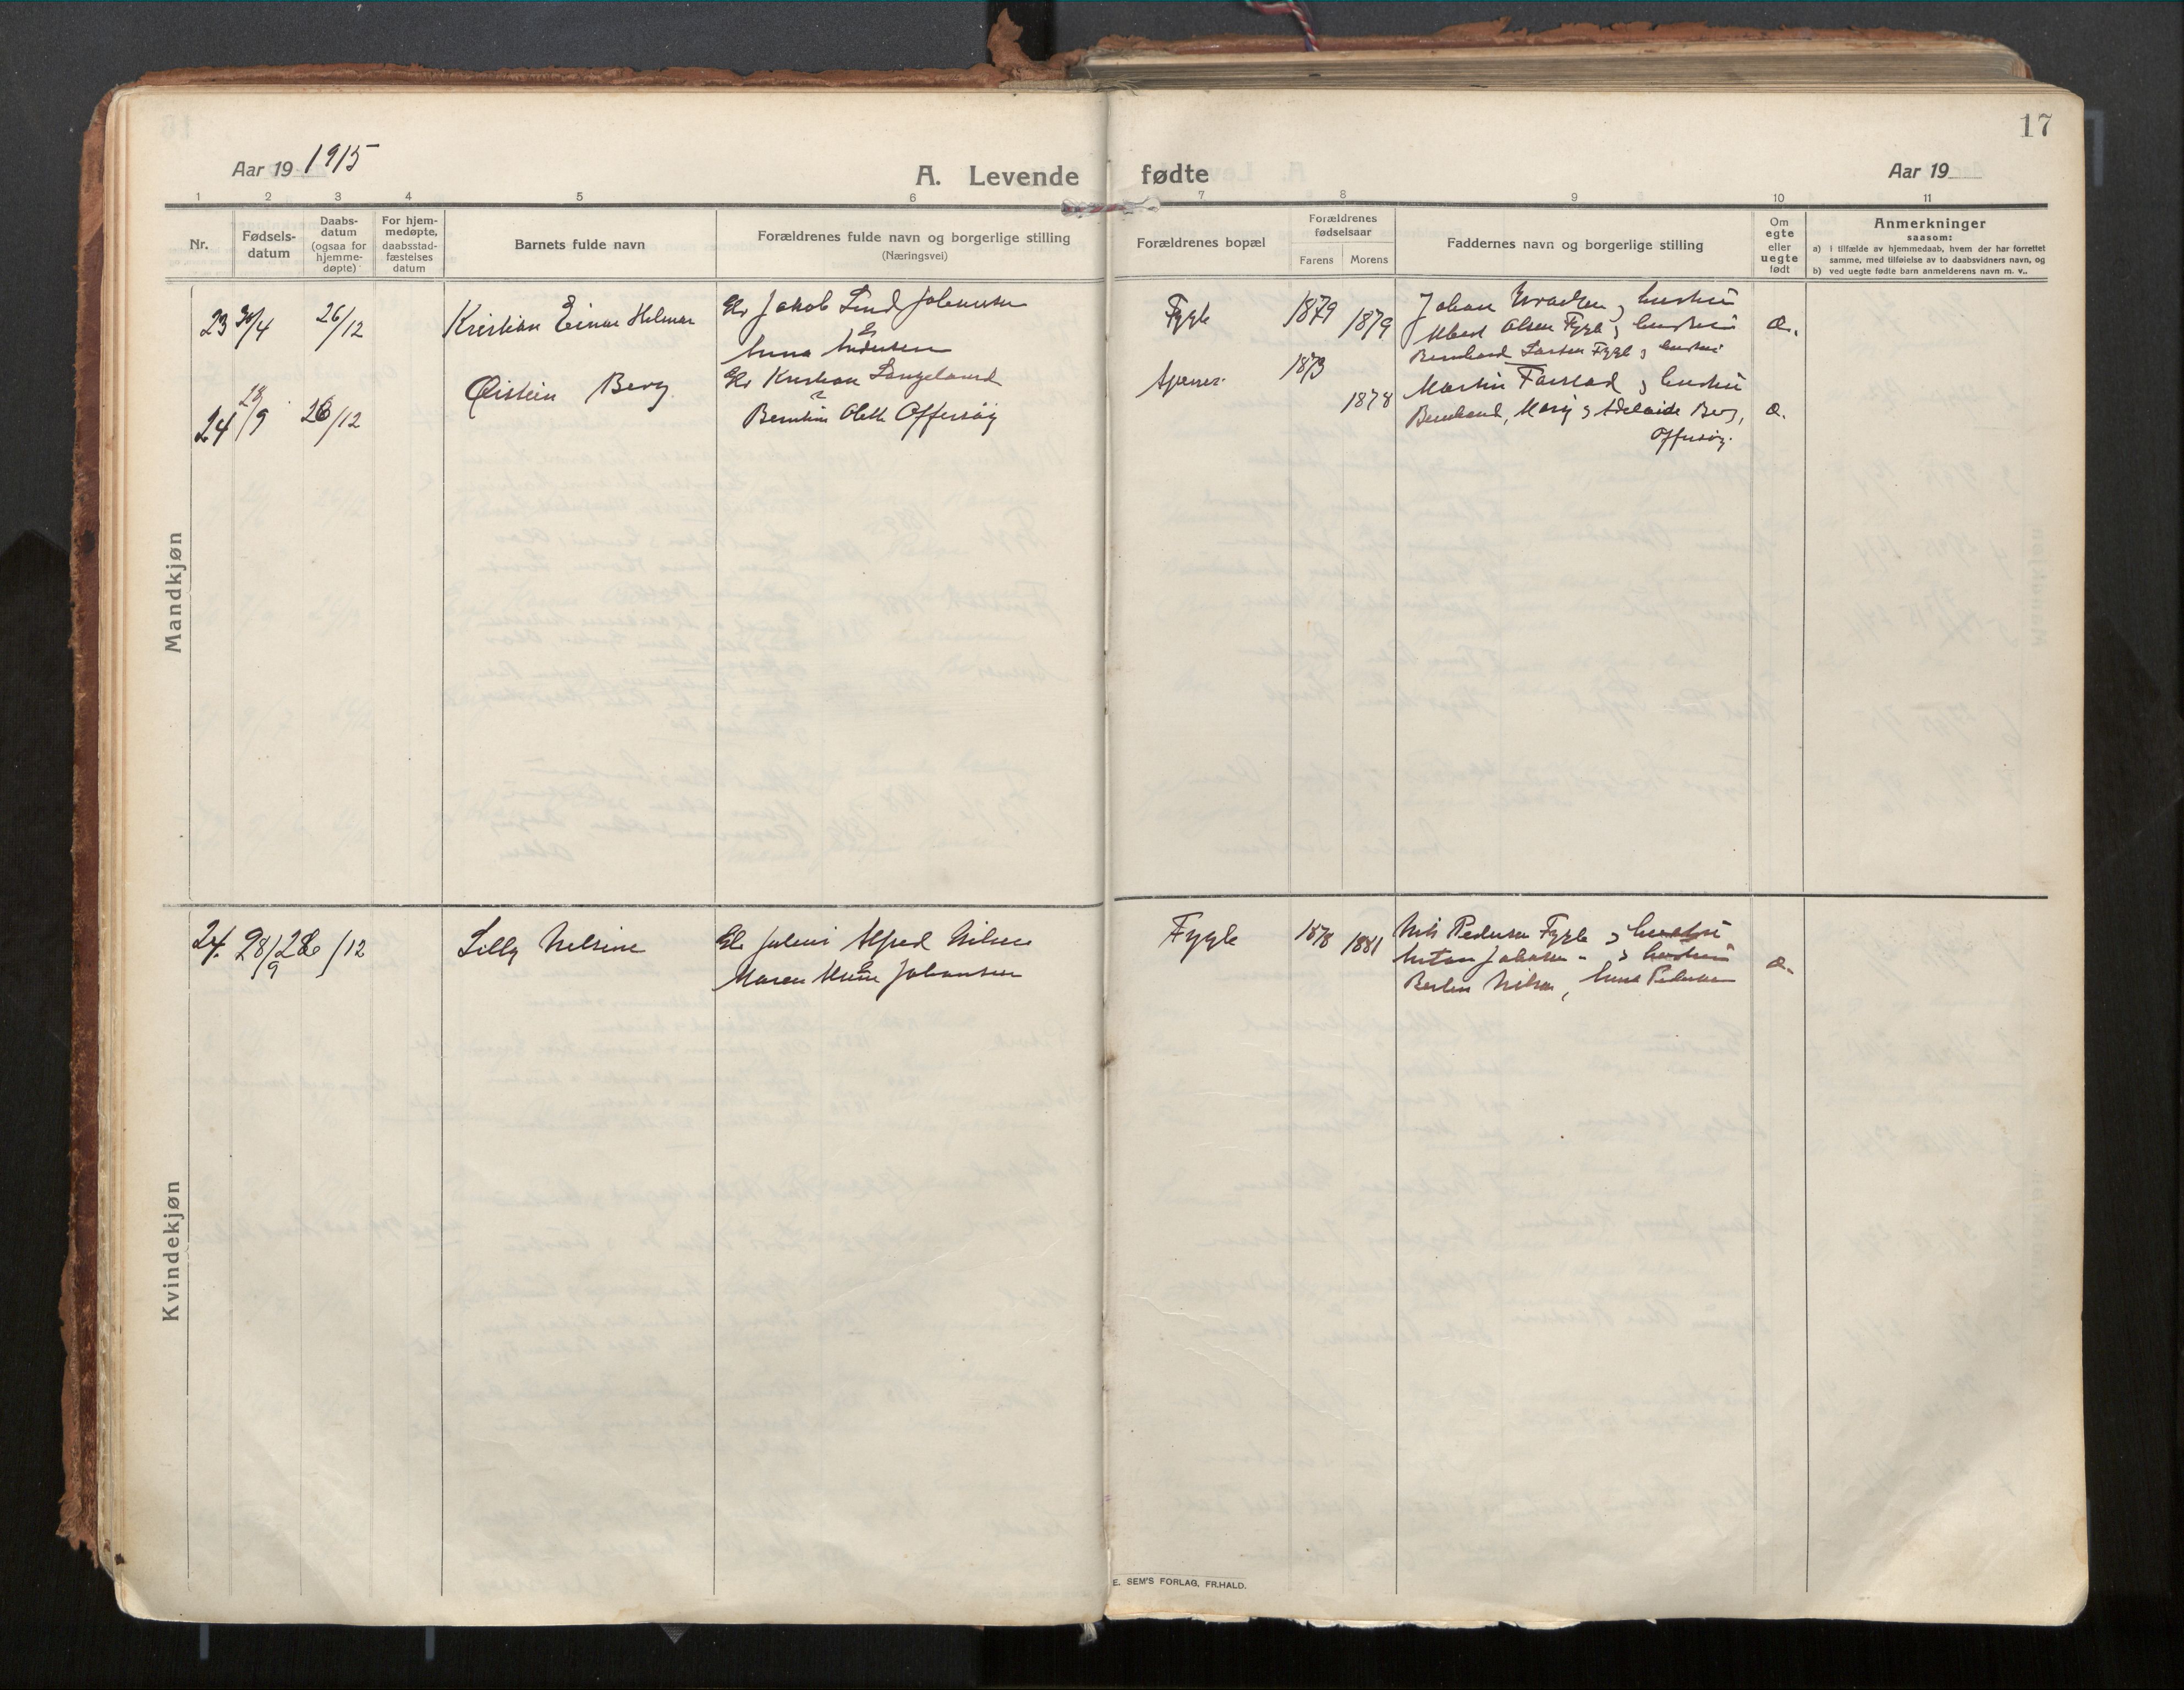 17
Aar 19 1915
A. Levende fødte
Aar 19
1 2 3 4 5 6 7 8 9 10 11
Nr.
Fødsels-
datum
Daabs-
datum
(ogsaa for
hjemme-
døpte)
For hjem-
medøpte,
daabsstad-
fæstelses
datum
Barnets fulde navn
Forældrenes fulde navn og borgerlige stilling
(Næringsvei)
Forældrenes bopæl
Forældrenes
fødselsaar
Farens Morens
Faddernes navn og borgerlige stilling
Om
egte
eller
uegte
født
Anmerkninger
saasom:
a) i tilfælde av hjemmedaab, hvem der har forrettet
samme, med tilføielse av to daabsvidners navn, og
b) ved uegte fødte barn anmelderens navn m. v..
Mandkjøn
23 30/4 26/12 Kristian Einar Helmer
Jakob Lind Johansen
Anna Andersen
Fygle 1879 1879
Johan & hustru
Albert Olsen Fygle & hustru
Bernhard Larsen Fygle & hustru
24 /9 26/12 Øistein Berg
Kristian Langeland
Olette Offersøy
1873 1878
Martin Farstad & hustru
Bernhard, & Adelaide Berg,
Offersøy.
Kvindekjøn
24. 28/9 26/12 Lilly Nelsine
Alfred Nilsen
Maren Johansen
Fygle 1878 1881
Nils Pedersen Fygle & hustru
Anton & hustru
Nilsen, Anna Pedersen
E. SEM'S FORLAG, FR.HALD.